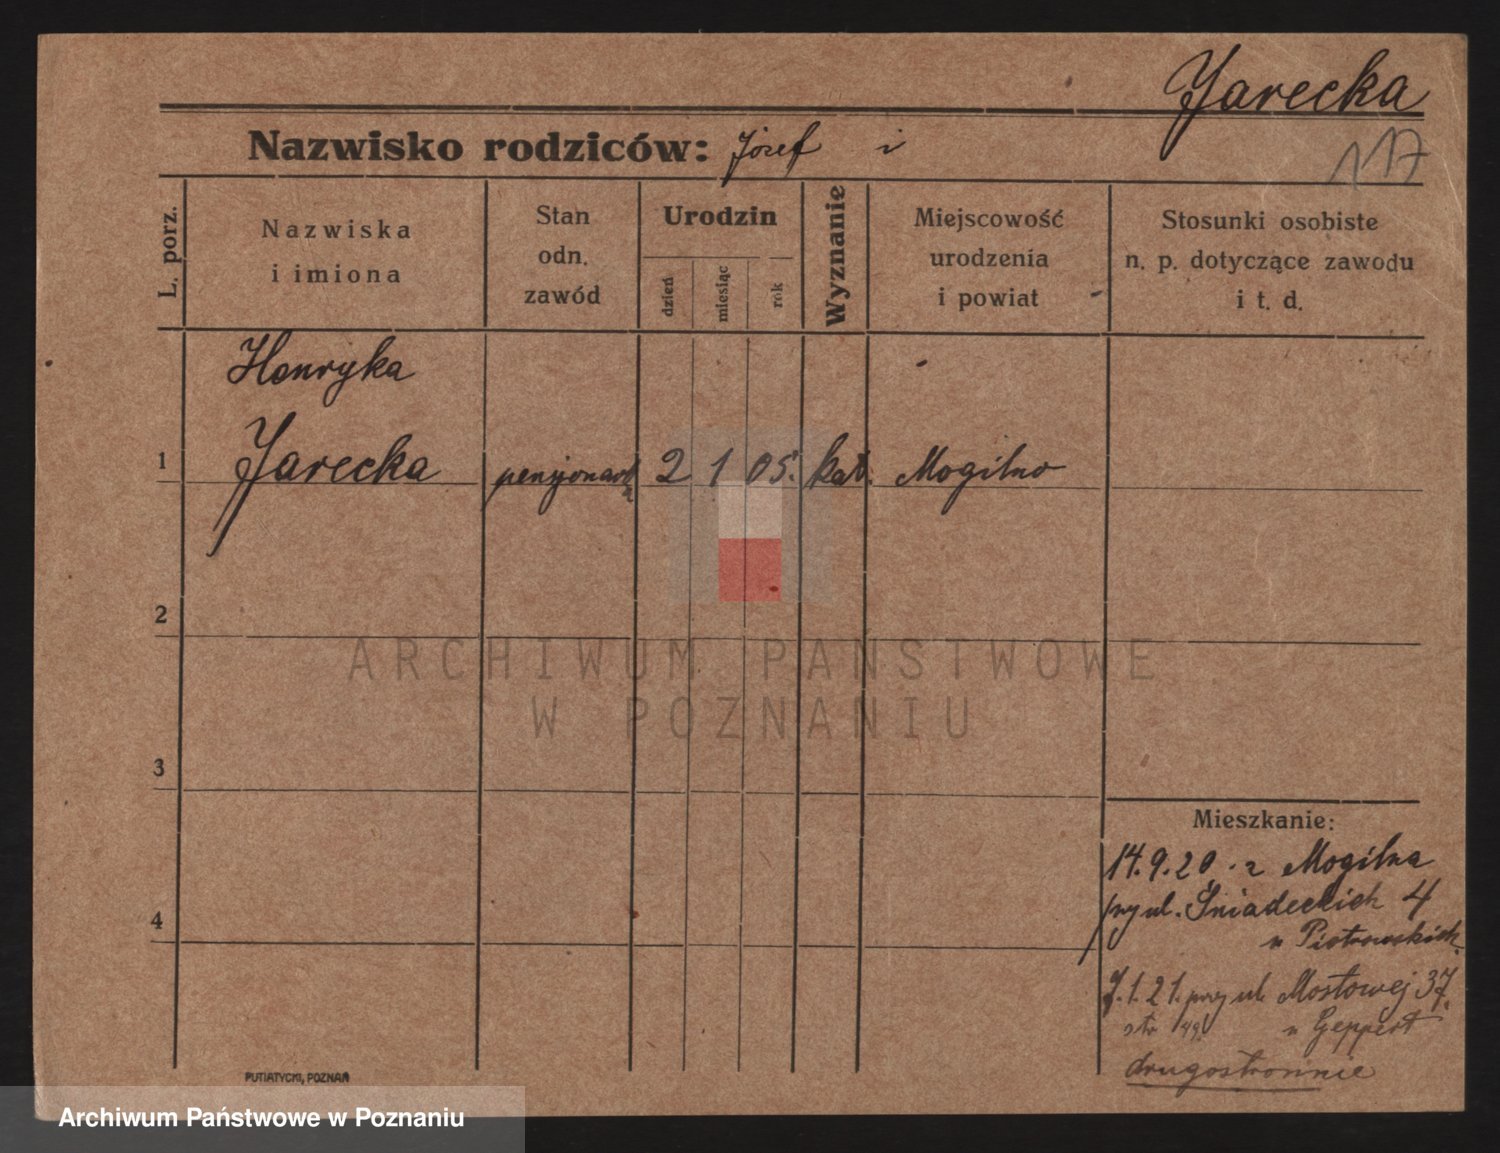 Jarecka
117
Nazwisko rodziców: Józef i
L. porz.
Nazwiska
i imiona
Stan
odn.
zawód
Urodzin
dzień
miesiąc
rok
Wyznanie
Miejscowość
urodzenia
i powiat
Stosunki osobiste
n. p. dotyczące zawodu
i t. d.
Henryka
1 Jarecka pensjonark 2 1 05. kat. Mogilno
2
ARCHIWUM PAŃSTWOWE
W POZNANIU
3
Mieszkanie:
14.9.20. z Mogilna
przy ul. Śniadeckich 4
u Piotrowskich
4
7.1.21. przy ul. Mostowej 37.
u Geppert
drugostronnie
PUTIATYCKI, POZNAŃ
Archiwum Państwowe w Poznaniu